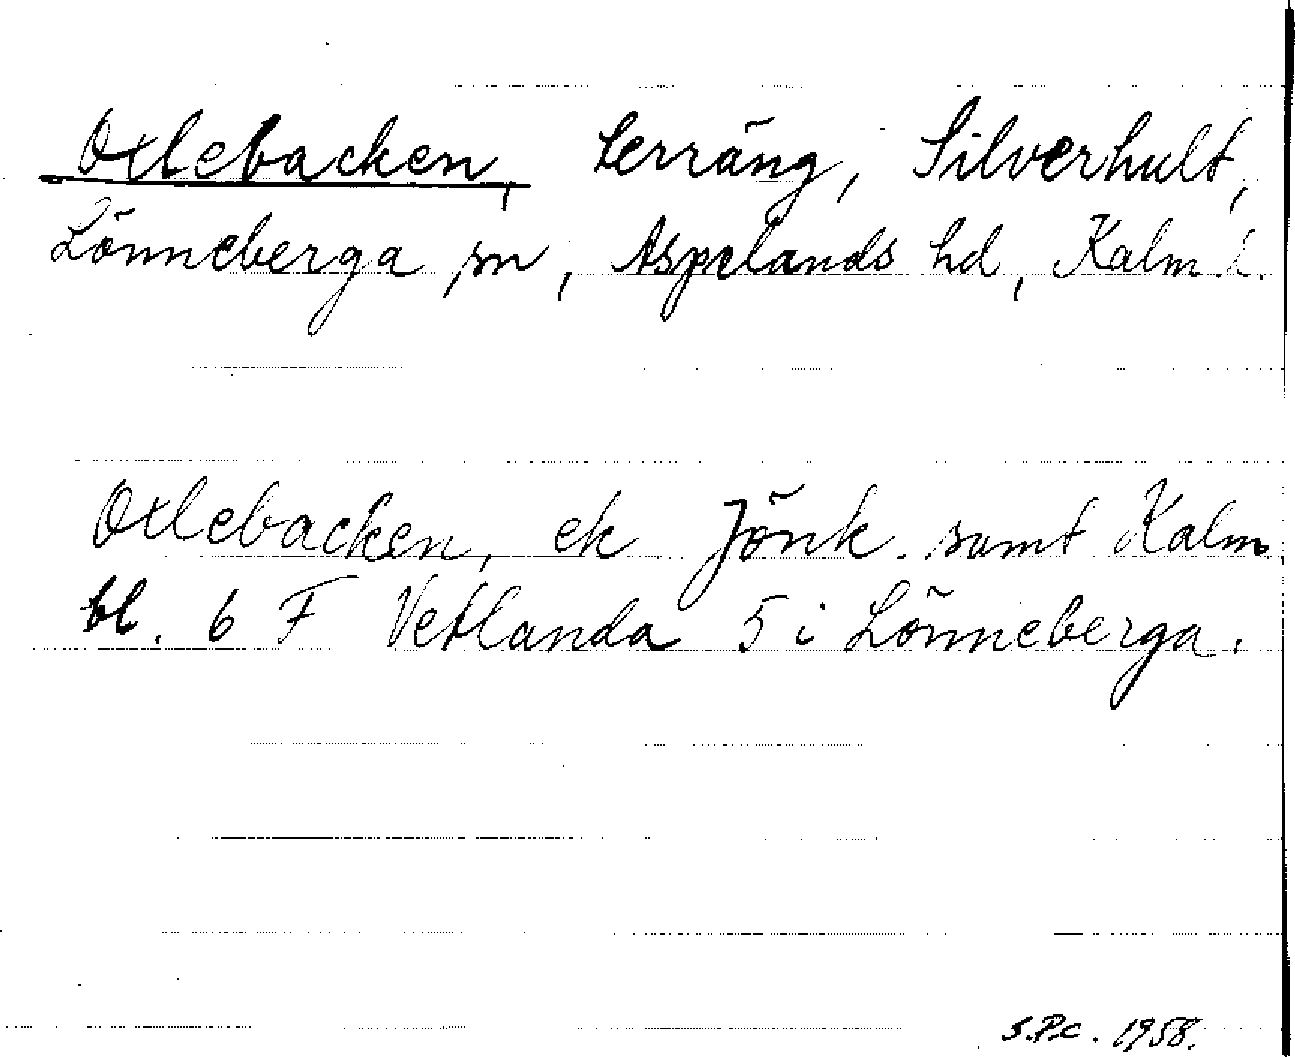 Oxlebacken, terräng, Silverhult,
Lönneberga sn, Aspelands hd, Kalm. l.
Oxlebacken, ek Jönk. samt Kalm.
bl. 6 F Vetlanda 5 i Lönneberga.
1958.